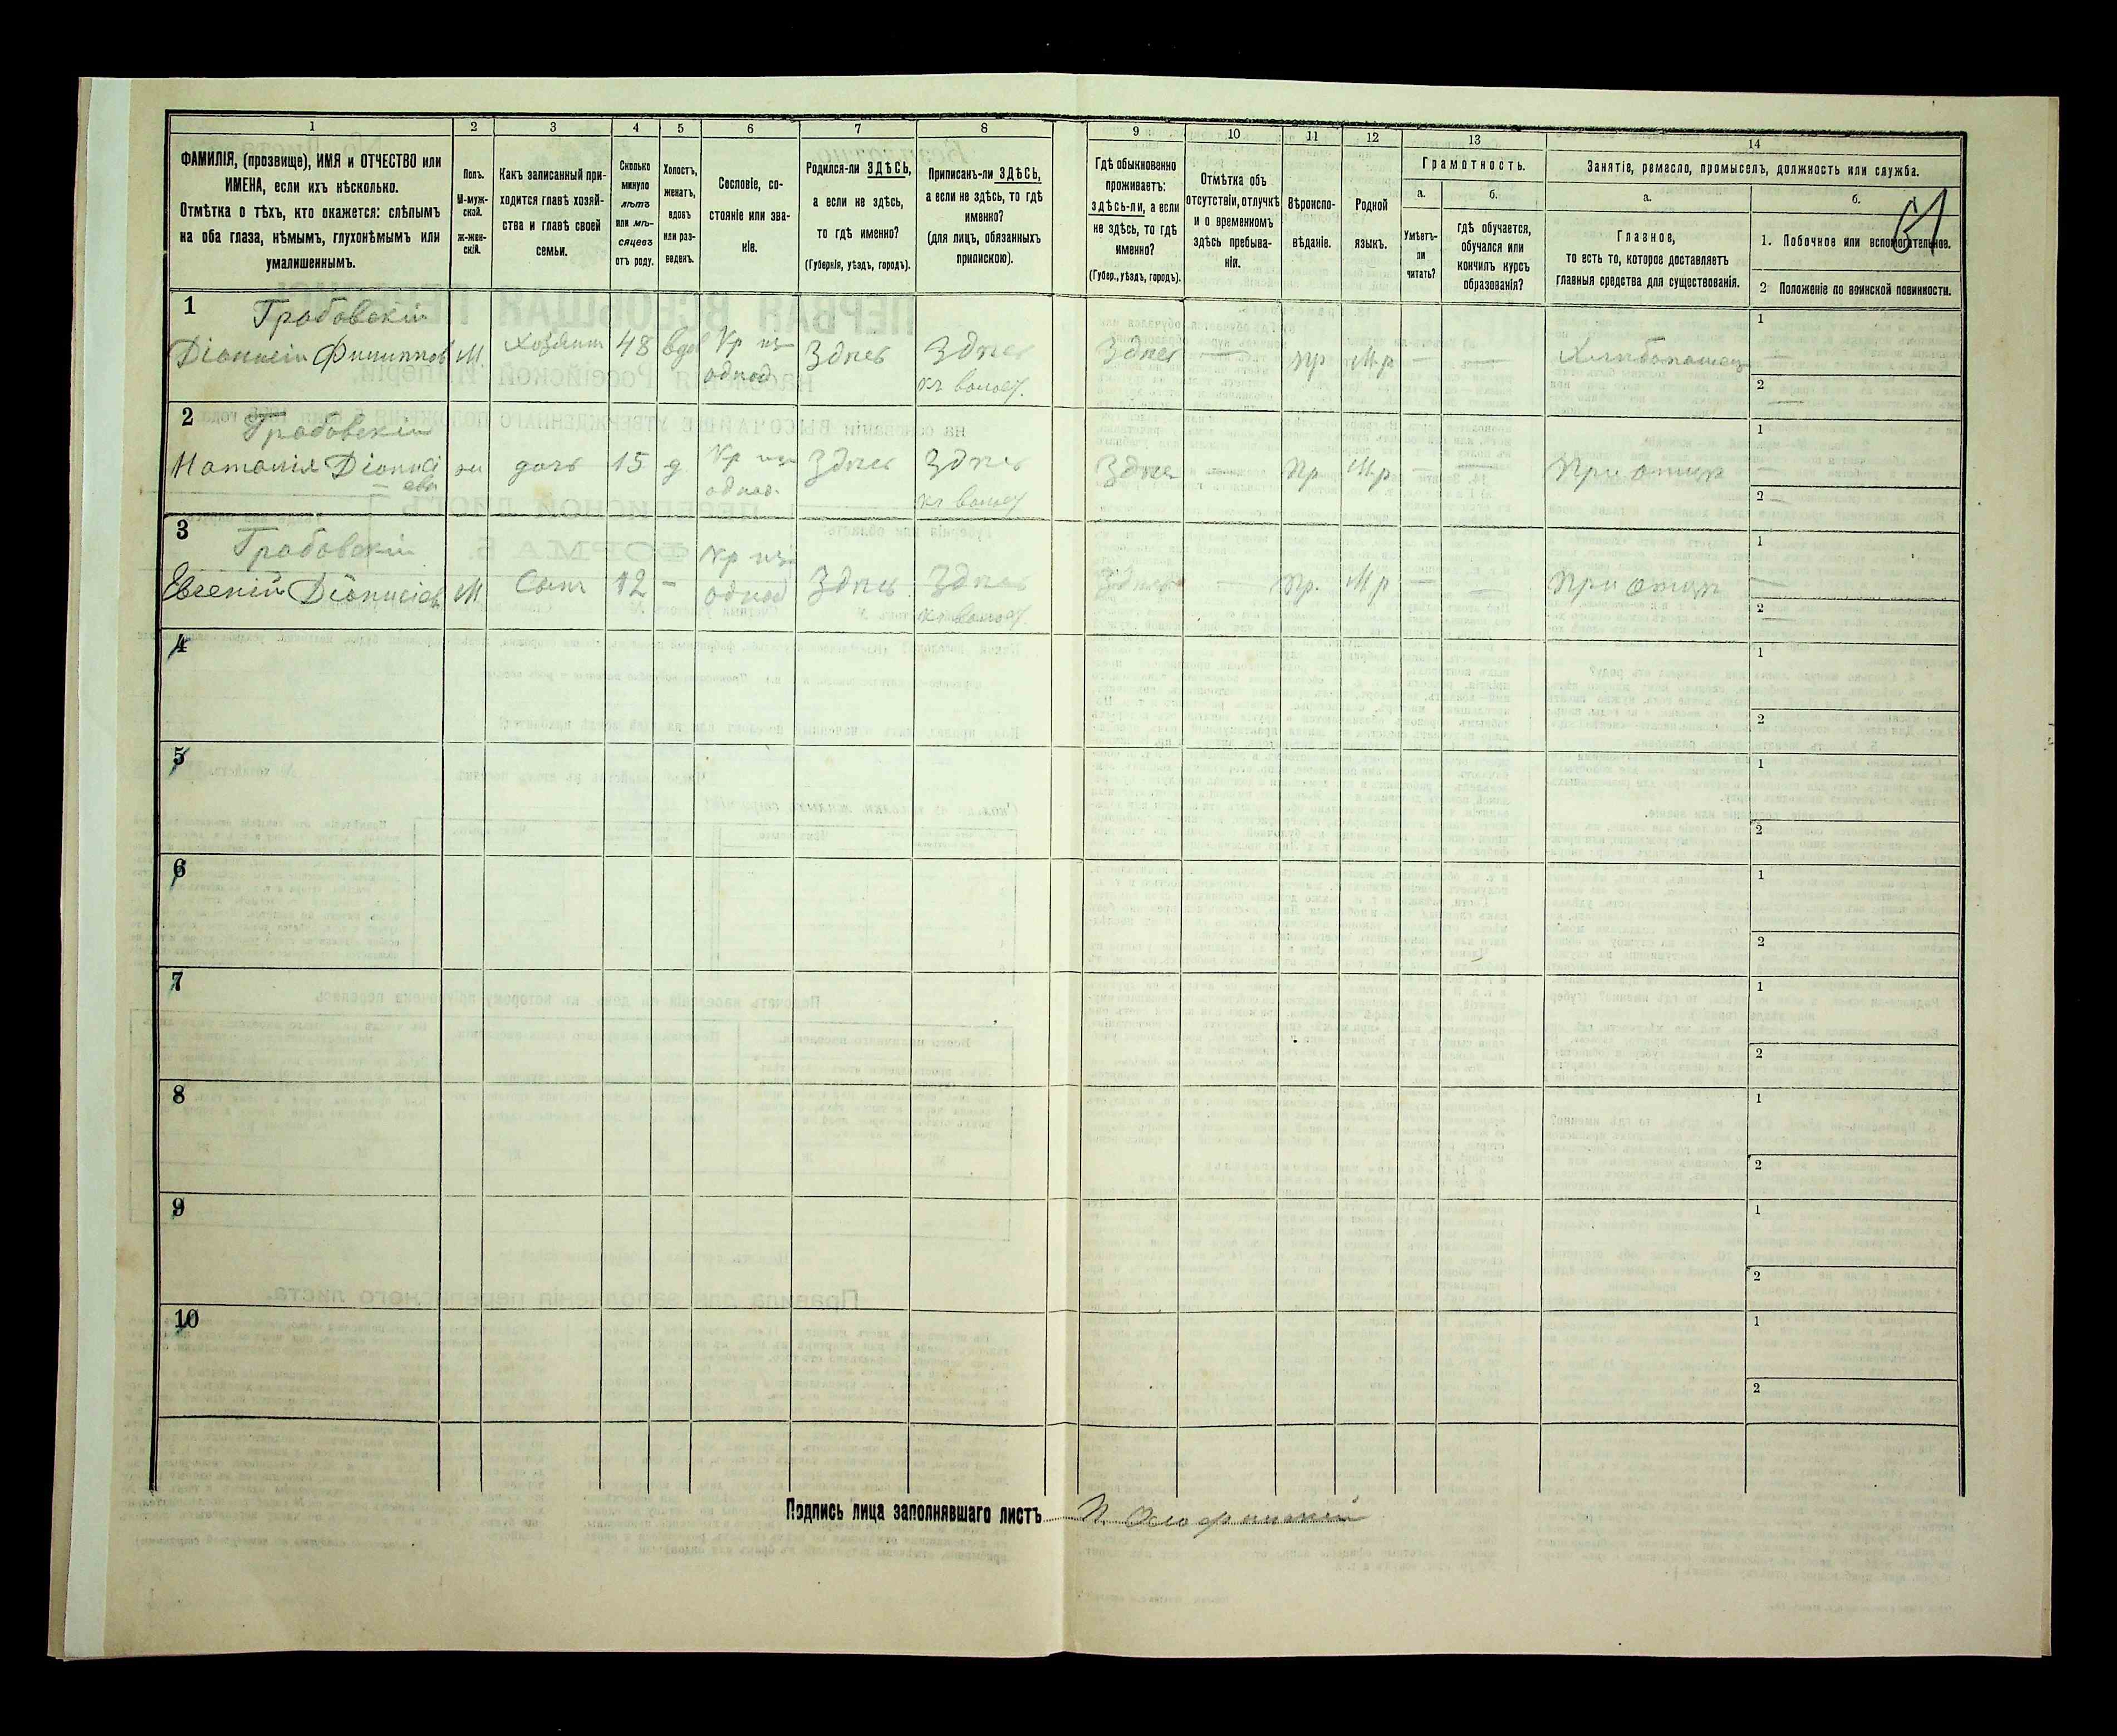 1 2 3 4 5 6 7 8 9 10 11 12 13 14
ФАМИЛІЯ, (прозвище), ИМЯ и ОТЧЕСТВО или
ИМЕНА, если ихъ нѣсколько.
Отмѣтка о тѣхъ, кто окажется: слѣпымъ
на оба глаза, нѣмымъ, глухонѣмымъ или
умалишеннымъ.
Полъ.
М-муж-
ской.
ж-жен-
скій.
Какъ записанный при-
ходится главѣ хозяй-
ства и главѣ своей
семьи.
Сколько
минуло
лѣтъ
или мѣ-
сяцевъ
отъ роду.
Холостъ,
женатъ,
вдовъ
или раз-
веденъ.
Сословіе, со-
стояніе или зва-
ніе.
Родился-ли ЗДѢСЬ,
а если не здѣсь,
то гдѣ именно?
(Губернія, уѣздъ, городъ).
Приписанъ-ли ЗДѢСЬ,
а если не здѣсь, то гдѣ
именно?
(для лицъ, обязанныхъ
припискою).
Гдѣ обыкновенно
проживаетъ:
здѣсь-ли, а если
не здѣсь, то гдѣ
именно?
(Губер., уѣздъ, городъ).
Отмѣтка объ
отсутствіи, отлучкѣ
и о временномъ
здѣсь пребыва-
ніи.
Вѣроиспо-
вѣданіе.
Родной
языкъ.
Грамотность.
а.
Умѣетъ-
ли
читать?
б.
гдѣ обучается,
обучался или
кончилъ курсъ
образованія?
Занятіе, ремесло, промыселъ, должность или служба.
а.
Главное,
то есть то, которое доставляетъ
главныя средства для существованія.
б.
1. Побочное или вспомогательное.
2 Положеніе по воинской повинности.
1
Грабовскій
Діонисій Филиппов М Хозяин 48 вдов Кр из однод Здесь Здесь
къ волост.
Здесь — пр М.р — — Хлебопашец
1 —
2 —
2
Грабовскій
Наталія Діонисі
ева
ж дочь 15 д Кр из однод. Здесь Здесь
къ волост
Здесь — Пр М.р — — При отце
1 —
2 —
3
Грабовскій
Евгеній Діонисіев М Сын 12 — Кр из однод Здесь Здесь
къ волост
Здесь — Пр. М р — — При отце
1 —
2 —
4
1
2
5
1
2
6
1
2
7
1
2
8
1
2
9
1
2
10
1
2
Подпись лица заполнявшаго листъ